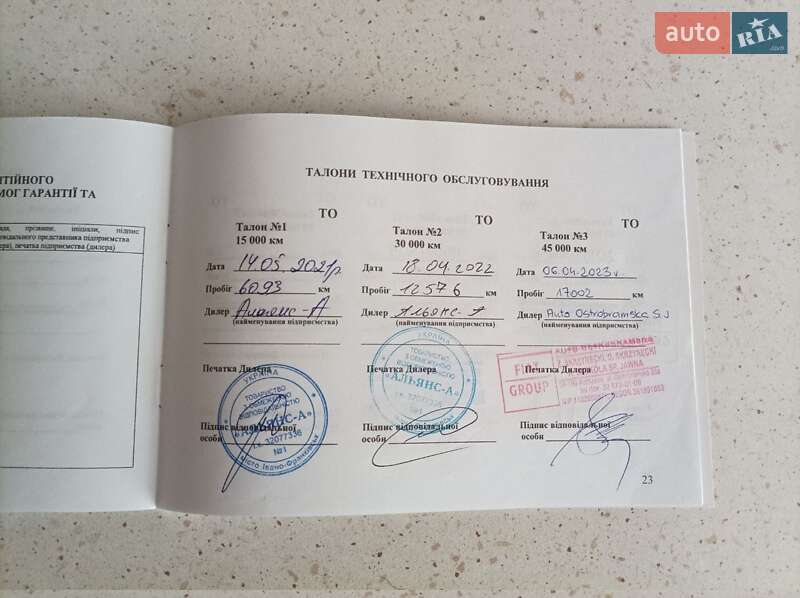 auto RIA
.com
ТІЙНОГО
МОГ ГАРАНТІЇ ТА
прізвище, ініціали, підпис
відповідального представника підприємства
печатка підприємства (дилера)
ТАЛОНИ ТЕХНІЧНОГО ОБСЛУГОВУВАННЯ
ТО
Талон №1
15 000 км
Дата 14.05.2021р
Пробіг 6093 км
Дилер Альянс-А
(найменування підприємства)
Печатка Дилера
УКРАЇНА
ТОВАРИСТВО
З ОБМЕЖЕНОЮ
ВІДПОВІДАЛЬНІСТЮ
«АЛЬЯНС-А»
і.к. 32077336
№1
місто Івано-Франківськ
Підпис відповідальної
особи
ТО
Талон №2
30 000 км
Дата 18.04.2022
Пробіг 12576 км
Дилер Альянс-А
(найменування підприємства)
Печатка Дилера
УКРАЇНА
ТОВАРИСТВО
З ОБМЕЖЕНОЮ
ВІДПОВІДАЛЬНІСТЮ
«АЛЬЯНС-А»
32077336
№1
Підпис відповідальної
особи
ТО
Талон №3
45 000 км
Дата 06.04.2023 г
Пробіг 17002 км
Дилер Auto Ostrobramska S.J
(найменування підприємства)
Печатка Дилера
FIAT
GROUP
SPÓŁKA SP. JAWNA
Підпис відповідальної
особи
23